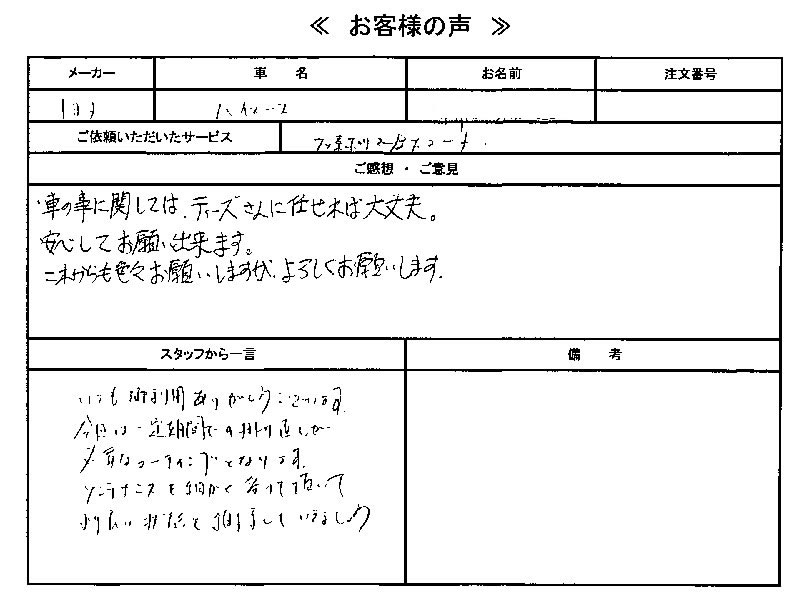 ≪ お客様の声 ≫
メーカー 車名 お名前 注文番号
トヨタ ハイエース
ご依頼いただいたサービス
ご感想・ご意見
車の事に関しては、ティーズさんに任せれば大丈夫。
安心してお願い出来ます。
これからも色々お願いしますが、よろしくお願いします。
スタッフから一言 備考
いつも御利用ありがとうございます。
今回は一定期間での掛り直しが
必要なコーティングとなります。
メンテナンスも細かく
状態を維持していきましょう